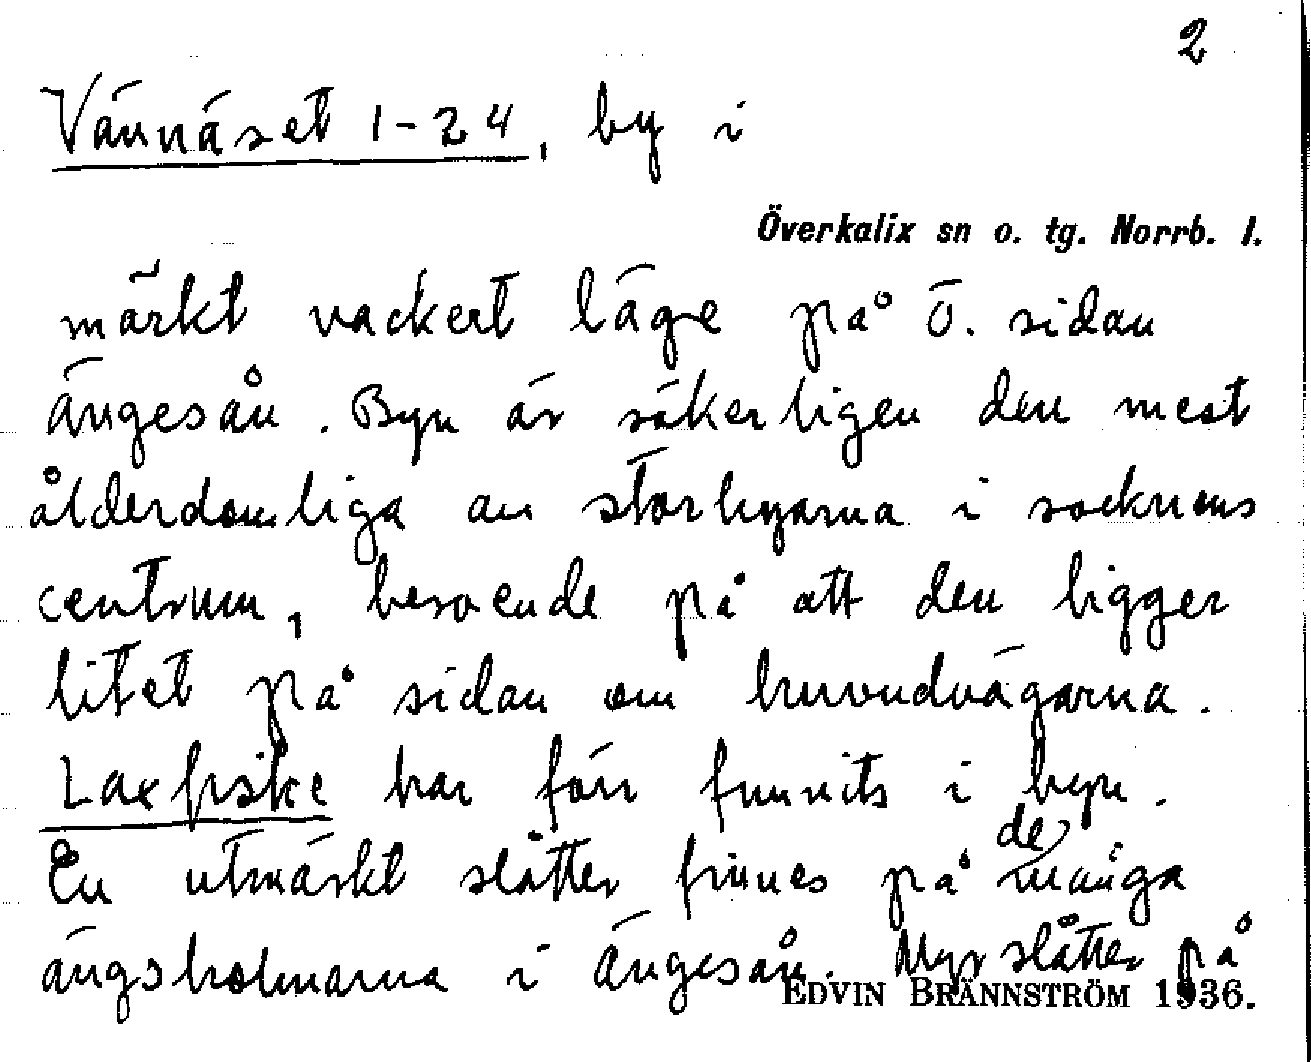 2
Vännäset 1-24, by i
Överkalix sn o. tg. Norrb. l.
märkt vackert läge på ö. sidan
Ängesån. Byn är säkerligen den mest
ålderdomliga av storbyarna i socknens
centrum, beroende på att den ligger
litet på sidan om huvudvägarna.
Laxfiske har förr funnits i byn.
En utmärkt slåtter finnes på de många
ängsholmarna i Ängesån. Myrslåtter på
EDVIN BRÄNNSTRÖM 1936.